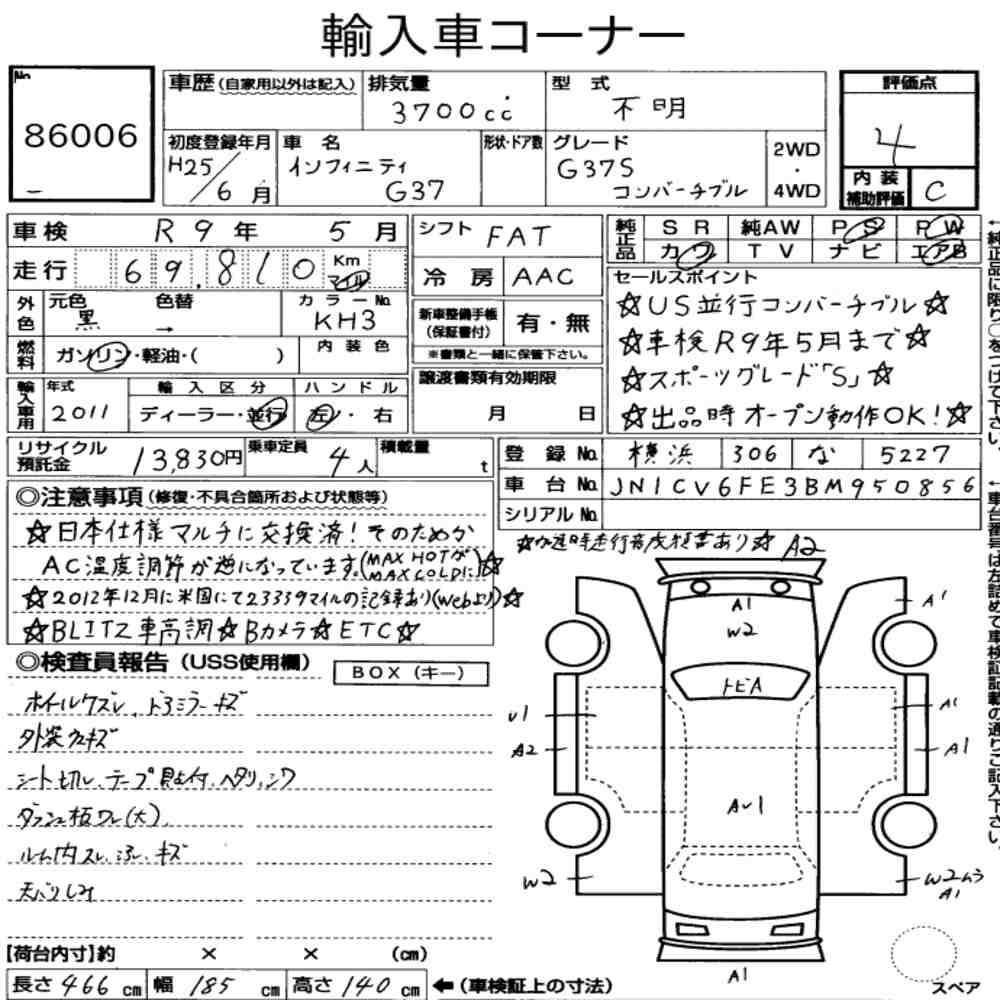 輸入車コーナー
No.
86006
車歴 (自家用以外は記入)
排気量
3700cc
型式
不明
評価点
4
初度登録年月
H25/6月
車名
インフィニティ
G37
形状・ドア数
グレード
G37S
コンバーチブル
2WD
・
4WD
内装
補助評価
C
車検 R9年 5月
走行 69,810 Km マイル
外色 元色 黒 色替 → カラーNo. KH3
燃料 ガソリン・軽油・( ) 内装色
輸入車用 年式 2011 輸入区分 ディーラー・並行 ハンドル 左・右
シフト FAT
冷房 AAC
新車整備手帳
(保証書付)
有・無
※書類と一緒に保管下さい。
譲渡書類有効期限
月 日
純正品 SR 純AW PS PW
カワ TV ナビ エアB
セールスポイント
☆US並行コンバーチブル☆
☆車検R9年5月まで☆
☆スポーツグレード「S」☆
☆出品時オープン動作OK!☆
←純正品に限り○をつけて下さい。
リサイクル
預託金
13,830円
乗車定員 4人
積載量 t
登録No. 横浜 306 な 5227
車台No. JN1CV6FE3BM950856
シリアルNo.
←車台番号は左詰めで車検証記載の通りご記入下さい。
◎注意事項(修復・不具合箇所および状態等)
☆日本仕様マルチに交換済!そのためか
AC温度調節が逆になっています。(MAX HOTがMAX COLDに)☆
☆2012年12月に米国にて23339マイルの記録あり(Webより)☆
☆BLITZ車高調☆Bカメラ☆ETC☆
走行
あり☆
◎検査員報告(USS使用欄)
BOX(キー)
ホイールクズレ、ドアミラーキズ
外装
キズ
シート切レ、テープ
付、ヘタリ、シワ
ダッシュ板ワレ(大)
ルーム内スレ、
キズ
天バリシミ
A2
A1
W2
トビA
A1
U1
A2
A1
A1
AU1
W2
W2ムラ
A1
A1
スペア
【荷台内寸】約 × × (cm)
長さ 466 cm 幅 185 cm 高さ 140 cm ←(車検証上の寸法)